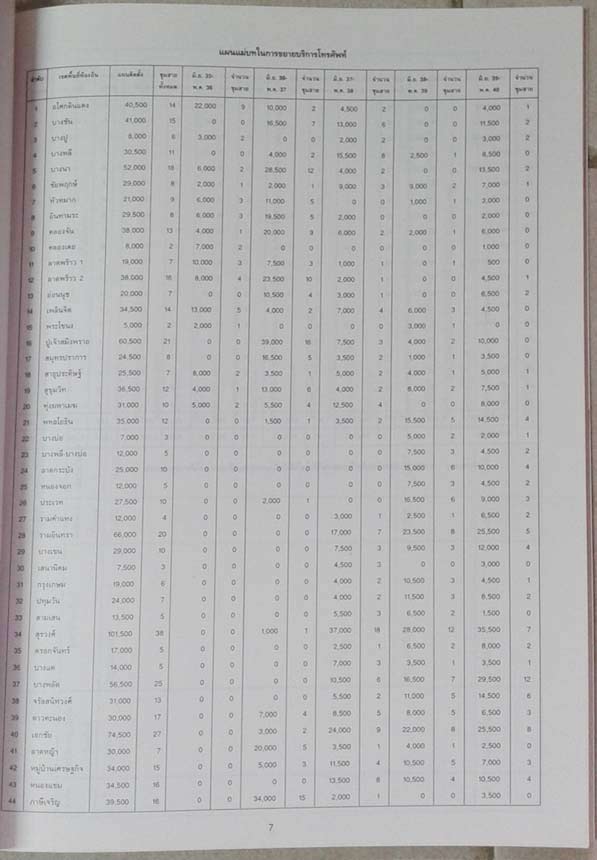 แผนแม่บทในการขยายบริการโทรศัพท์
ลำดับ เขตพื้นที่ท้องถิ่น แผนติดตั้ง ชุมสายทั้งหมด มิ.ย. 35-พ.ค. 36 จำนวนชุมสาย มิ.ย. 36-พ.ค. 37 จำนวนชุมสาย มิ.ย. 37-พ.ค. 38 จำนวนชุมสาย มิ.ย. 38-พ.ค. 39 จำนวนชุมสาย มิ.ย. 39-พ.ค. 40 จำนวนชุมสาย
1 อโศกดินแดง 40,500 14 22,000 9 10,000 2 4,500 2 0 0 4,000 1
2 บางชัน 41,000 15 0 0 16,500 7 13,000 6 0 0 11,500 2
3 บางปู 8,000 6 3,000 2 0 0 2,000 2 0 0 3,000 2
4 บางพลี 30,500 11 0 0 4,000 2 15,500 8 2,500 1 8,500 0
5 บางนา 52,000 18 6,000 2 28,500 12 4,000 2 0 0 13,500 2
6 ชัยพฤกษ์ 29,000 8 2,000 1 2,000 1 9,000 3 9,000 2 7,000 1
7 หัวหมาก 21,000 9 6,000 3 11,000 5 0 0 1,000 1 3,000 0
8 อินทามระ 29,500 8 6,000 3 19,500 5 2,000 0 0 0 2,000 0
9 คลองจั่น 38,000 13 4,000 1 20,000 9 6,000 2 2,000 1 6,000 0
10 คลองเตย 8,000 2 7,000 2 0 0 0 0 0 0 1,000 0
11 ลาดพร้าว 1 19,000 7 10,000 3 7,500 3 1,000 1 0 0 500 0
12 ลาดพร้าว 2 38,000 16 8,000 4 23,500 10 2,000 1 0 0 4,500 1
13 อ่อนนุช 20,000 7 0 0 10,500 4 3,000 1 0 0 6,500 2
14 เพลินจิต 34,500 14 13,000 5 4,000 2 7,000 4 6,000 3 4,500 0
15 พระโขนง 5,000 2 2,000 1 0 0 0 0 3,000 1 0 0
16 ปู่เจ้าสมิงพราย 60,500 21 0 0 39,000 16 7,500 3 4,000 2 10,000 0
17 สมุทรปราการ 24,500 8 0 0 16,500 5 3,500 2 1,000 1 3,500 0
18 สาธุประดิษฐ์ 25,500 7 8,000 2 3,500 1 5,000 2 4,000 1 5,000 1
19 สุขุมวิท 36,500 12 4,000 1 13,000 6 4,000 2 8,000 2 7,500 1
20 ทุ่งมหาเมฆ 31,000 10 5,000 2 5,500 4 12,500 4 0 0 8,000 0
21 พหลโยธิน 35,000 12 0 0 1,500 1 3,500 2 15,500 5 14,500 4
22 บางบ่อ 7,000 3 0 0 0 0 0 0 5,000 2 2,000 1
23 บางพลี-บางบ่อ 12,000 5 0 0 0 0 0 0 7,500 3 4,500 2
24 ลาดกระบัง 25,000 10 0 0 0 0 0 0 15,000 6 10,000 4
25 หนองจอก 12,000 5 0 0 0 0 0 0 7,500 3 4,500 2
26 ประเวท 27,500 10 0 0 2,000 1 0 0 16,500 6 9,000 3
27 รามคำแหง 12,000 4 0 0 0 0 3,000 1 2,500 1 6,500 2
28 รามอินทรา 66,000 20 0 0 0 0 17,000 7 23,500 8 25,500 5
29 บางเขน 29,000 10 0 0 0 0 7,500 3 9,500 3 12,000 4
30 เสนานิคม 7,500 3 0 0 0 0 4,500 3 0 0 3,000 0
31 กรุงเกษม 19,000 6 0 0 0 0 4,000 2 10,500 3 4,500 1
32 ปทุมวัน 24,000 7 0 0 0 0 4,000 2 11,500 3 8,500 2
33 สามเสน 13,500 5 0 0 0 0 5,500 3 6,500 2 1,500 0
34 สุรวงศ์ 101,500 38 0 0 1,000 1 37,000 18 28,000 12 35,500 7
35 ตรอกจันทร์ 17,000 5 0 0 0 0 2,500 1 6,500 2 8,000 2
36 บางแค 14,000 5 0 0 0 0 7,000 3 3,500 1 3,500 1
37 บางพลัด 56,500 25 0 0 0 0 10,500 6 16,500 7 29,500 12
38 จรัลสนิทวงศ์ 31,000 13 0 0 0 0 5,500 2 11,000 5 14,500 6
39 ดาวคะนอง 30,000 17 0 0 7,000 4 8,500 5 8,000 5 6,500 3
40 เอกชัย 74,500 27 0 0 3,000 2 24,000 9 22,000 8 25,500 8
41 ลาดหญ้า 30,000 7 0 0 20,000 5 3,500 1 4,000 1 2,500 0
42 หมู่บ้านเศรษฐกิจ 34,000 15 0 0 5,000 3 11,500 4 10,500 5 7,000 3
43 หนองแขม 34,500 16 0 0 0 0 13,500 8 10,500 4 10,500 4
44 ภาษีเจริญ 39,500 16 0 0 34,000 15 2,000 1 0 0 3,500 0
7